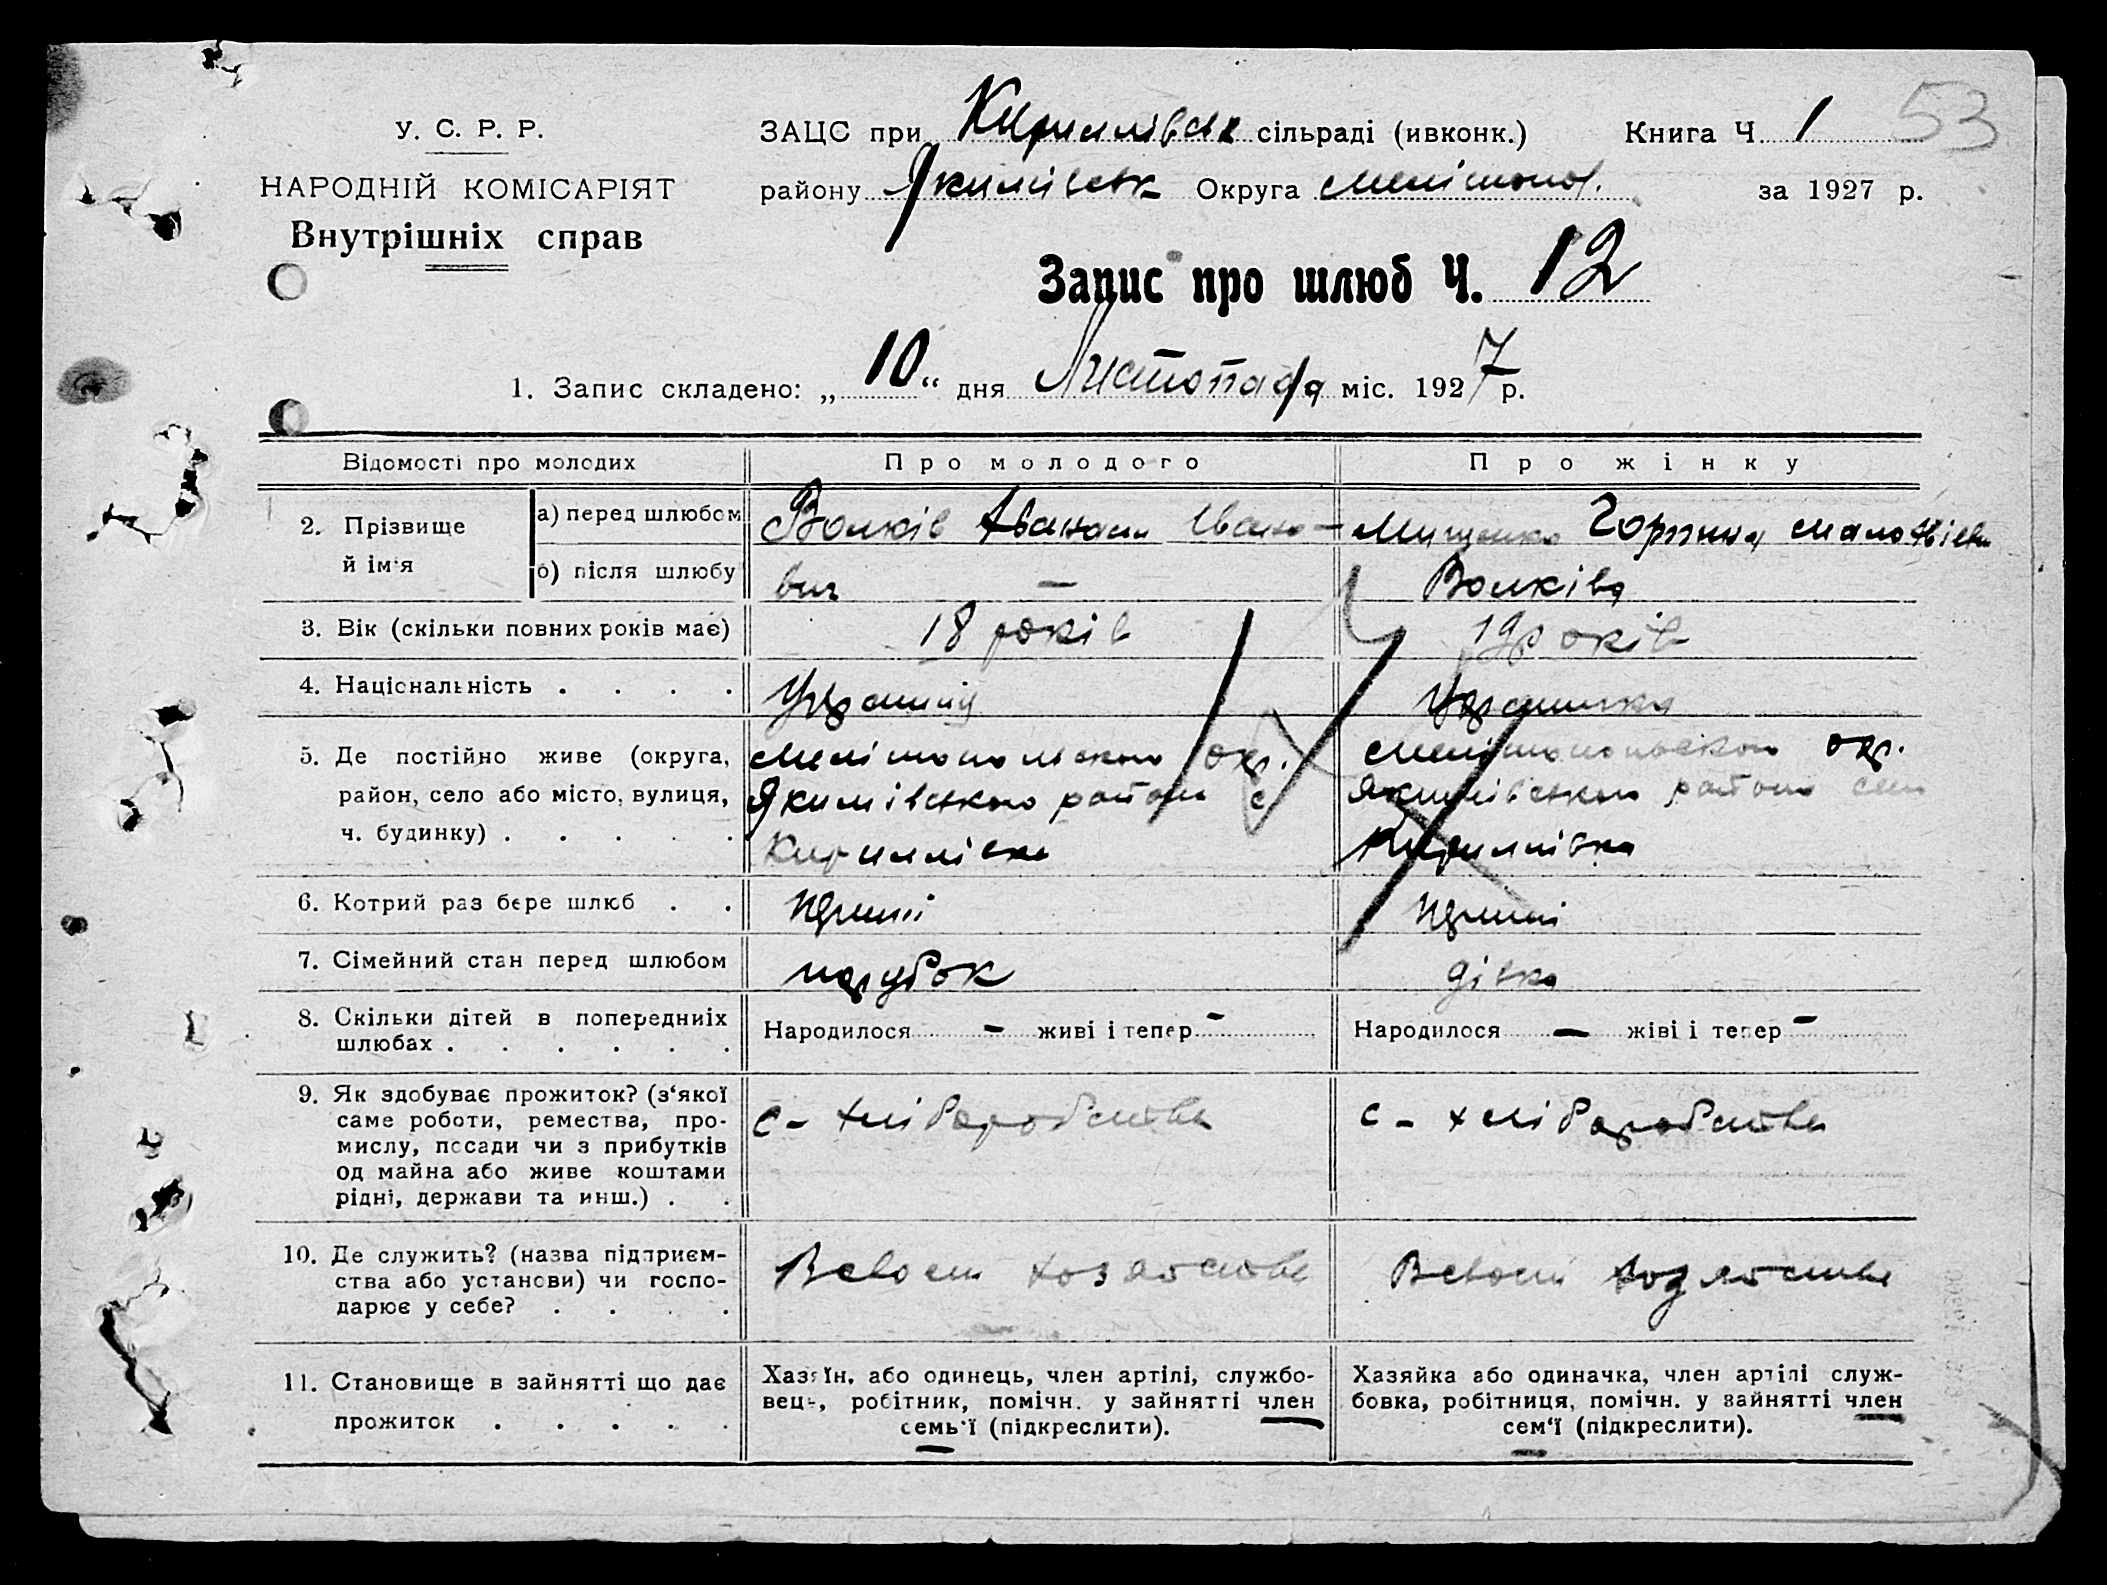 53
У. С. Р. Р.
НАРОДНІЙ КОМІСАРІЯТ
Внутрішніх справ
ЗАЦС при Кириллівск сільраді (ивконк.) Книга Ч. 1
району Якимівськ Округа Мелітопол. за 1927 р.
Запис про шлюб Ч. 12
1. Запис складено: „10“ дня Листопада міс. 1927 р.
Відомості про молодих
Про молодого
Про жінку
2. Прізвище й ім'я
а) перед шлюбом
Волків Аванаси Івано-
Мищенко Горпина
б) після шлюбу
вич —
Волківа
3. Вік (скільки повних років має)
18 років
19 років
4. Національність . . . .
Українка
5. Де постійно живе (округа,
район, село або місто, вулиця,
ч. будинку) . . . . .
Мелітопольского окр.
Якимівського району с
Кириллівка
Мелітопольского окр.
Якимівського району село
Кириллівка
6. Котрий раз бере шлюб . .
перший
перший
7. Сімейний стан перед шлюбом
парубок
дівка
8. Скільки дітей в попередниіх
шлюбах . . . . . .
Народилося — живі і тепер —
Народилося — жіві і тепер —
9. Як здобуває прожиток? (з‘якої
саме роботи, ремества, про-
мислу, посади чи з прибутків
од майна або живе коштами
рідні, держави та инш.) . .
с - хліборобство
с - хліборобство
10. Де служить? (назва підприєм-
ства або установи) чи госпо-
дарює у себе? . . . .
В своєм хозяйстве
В своєм хозяйстве
11. Становище в зайнятті що дає
прожиток . . . . .
Хазяїн, або одинець, член артілі, службо-
вець, робітник, помічн. у зайнятті член
семь'ї (підкреслити).
Хазяйка або одиначка, член артілі служ-
бовка, робітниця, помічн. у зайнятті член
сем‘ї (підкреслити).